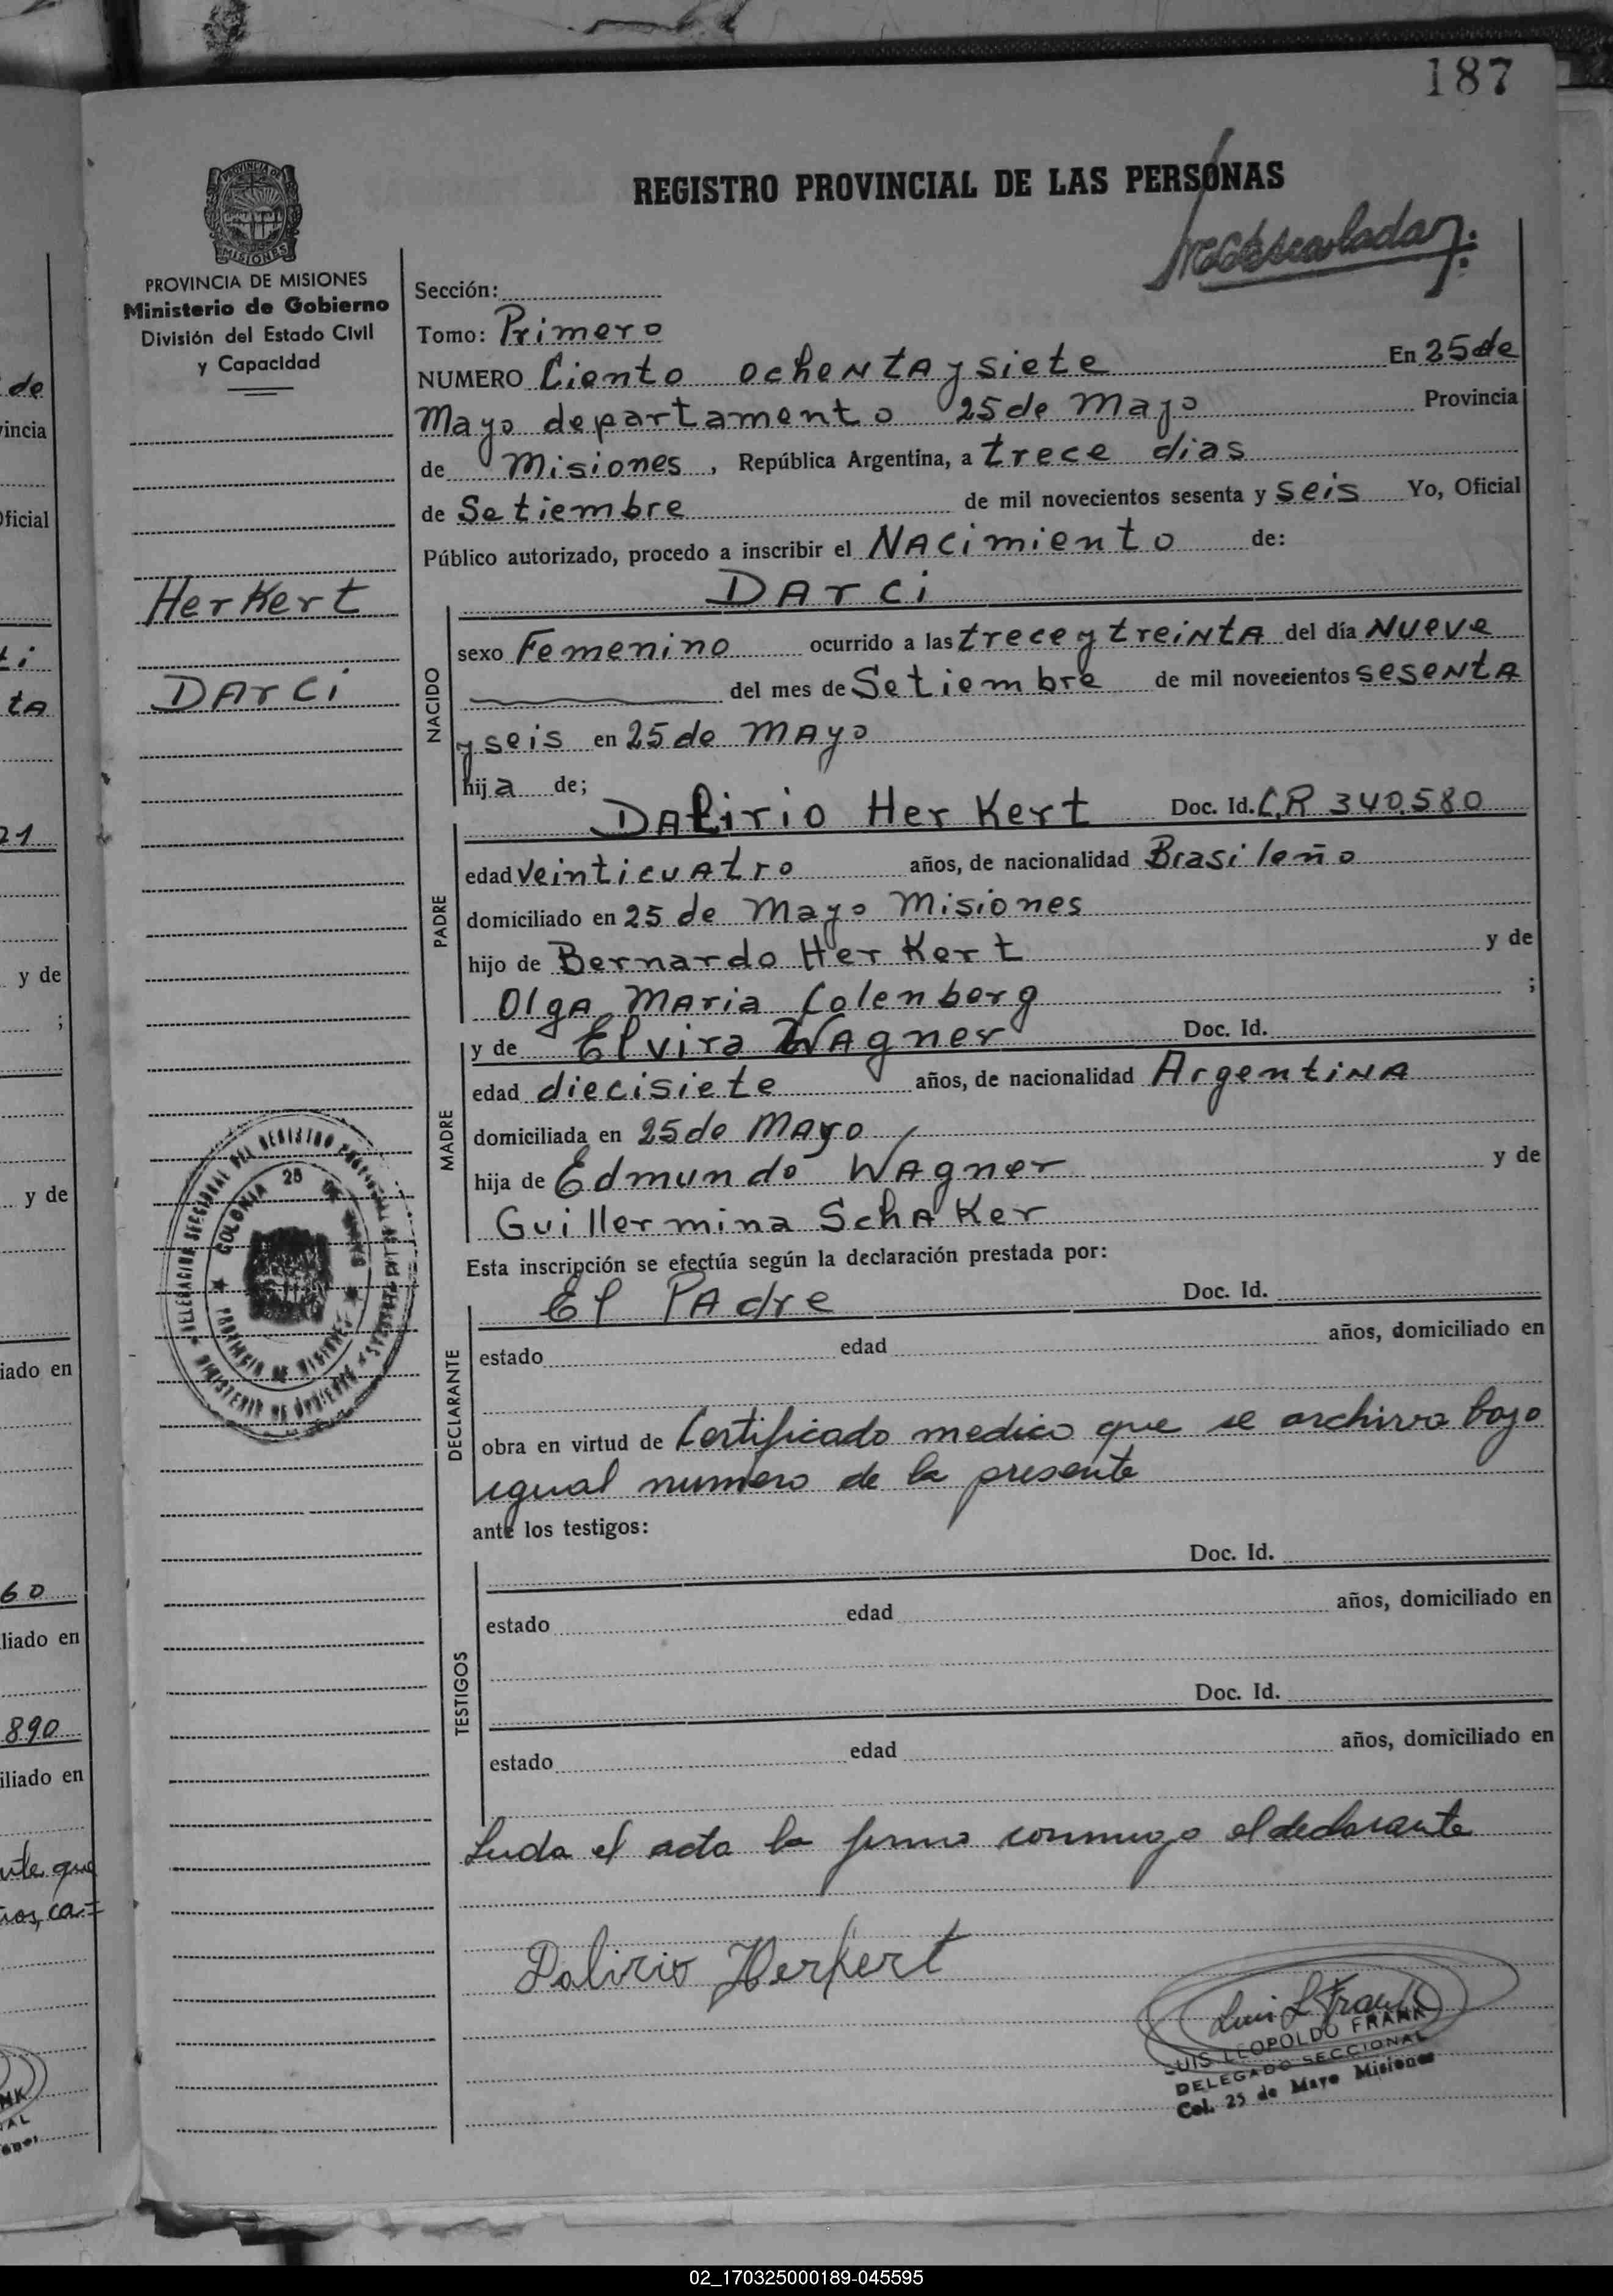 187
PROVINCIA DE MISIONES
PROVINCIA DE MISIONES
Ministerio de Gobierno
División del Estado Civil
y Capacidad
REGISTRO PROVINCIAL DE LAS PERSONAS
Sección:
Tomo: Primero
NUMERO Ciento ochenta y siete En 25 de
Mayo departamento 25 de Mayo Provincia
de Misiones, República Argentina, a trece dias
de Setiembre de mil novecientos sesenta y seis Yo, Oficial
Público autorizado, procedo a inscribir el Nacimiento de:
Herkert
Darci
Darci
NACIDO
sexo Femenino ocurrido a las trece y treinta del día Nueve
del mes de Setiembre de mil novecientos sesenta
y seis en 25 de Mayo
hija de;
PADRE
Dalirio Herkert Doc. Id. C.R 340.580
edad veinticuatro años, de nacionalidad Brasileño
domiciliado en 25 de Mayo Misiones
hijo de Bernardo Herkert y de
Olga Maria Colenberg ;
MADRE
y de Elvira Wagner Doc. Id.
edad diecisiete años, de nacionalidad Argentina
domiciliada en 25 de Mayo
hija de Edmundo Wagner y de
Guillermina Schaker
Esta inscripción se efectúa según la declaración prestada por:
DECLARANTE
El Padre Doc. Id.
estado edad años, domiciliado en
obra en virtud de Certificado medico que se archiva bajo
igual numero de la presente
ante los testigos:
TESTIGOS
Doc. Id.
estado edad años, domiciliado en
Doc. Id.
estado edad años, domiciliado en
Leida el acta la firma conmigo el declarante
Dalirio Herkert
Luis L Frank
LUIS LEOPOLDO FRANK
DELEGADO SECCIONAL
Col. 25 de Mayo Misiones
DELEGACION SECCIONAL DEL REGISTRO PROVINCIAL DE LAS PERSONAS
MINISTERIO DE GOBIERNO
COLONIA 25 DE MAYO
PROVINCIA DE MISIONES
de
vincia
Oficial
ti
ta
21
y de
;
y de
iado en
60
liado en
890
iliado en
02_170325000189-045595